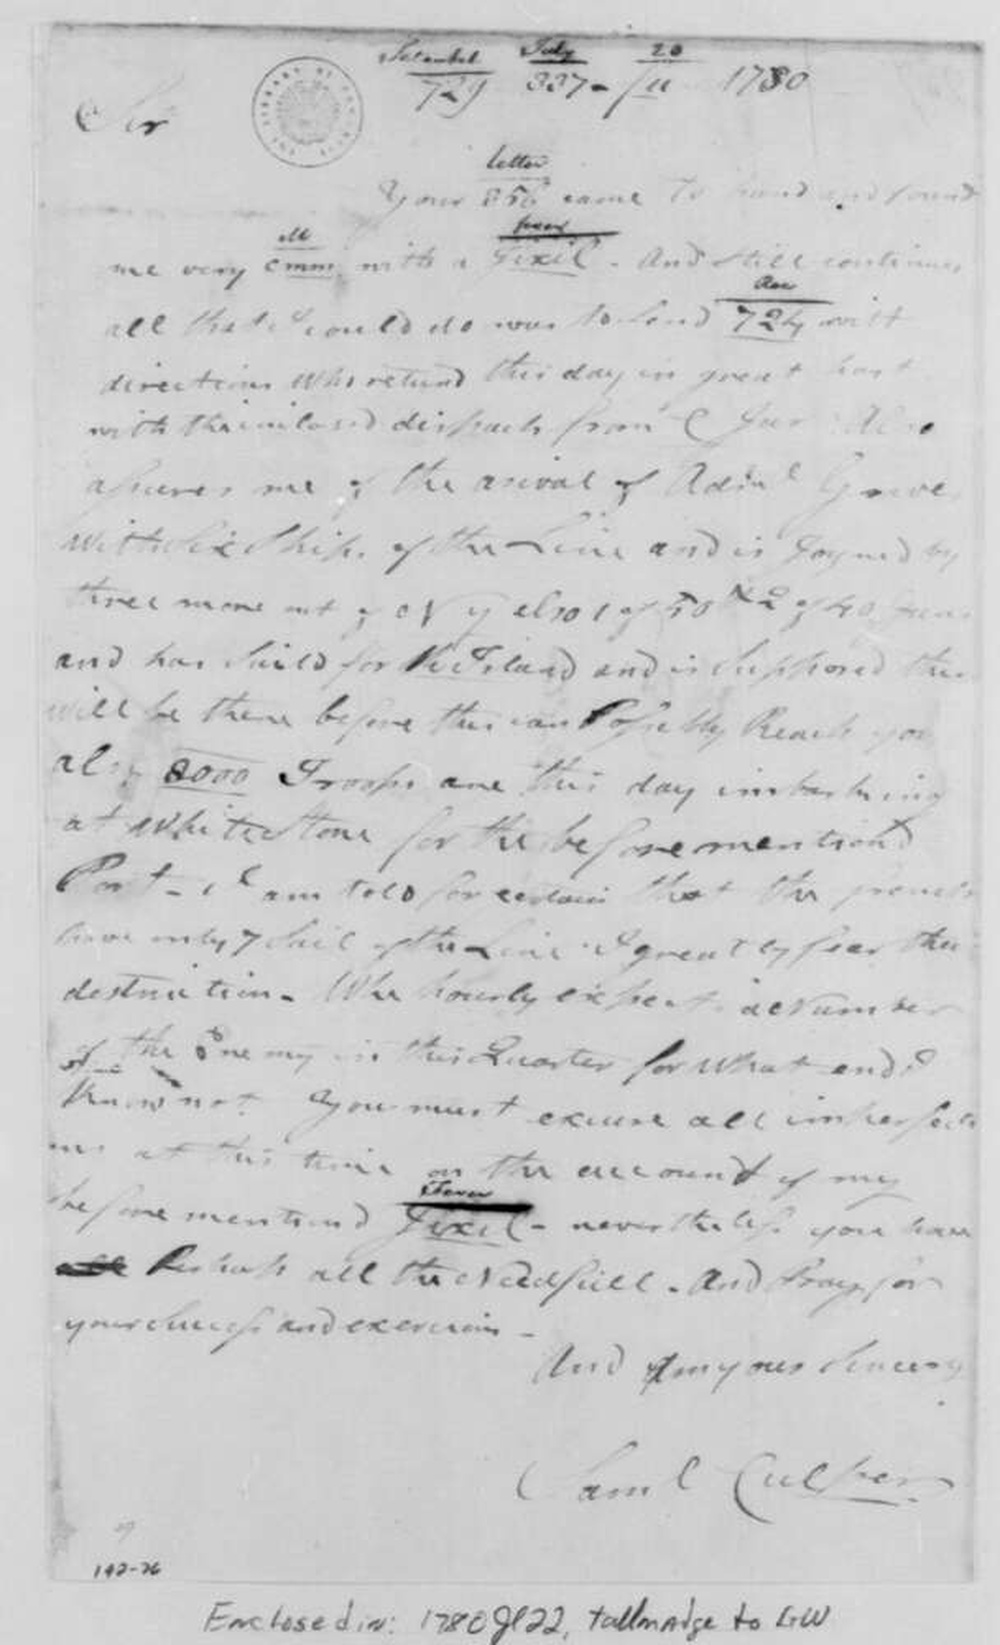 Setauket July 20
729 337- /11 1780
Sir
letter
Your 356 came to hand and found
ill fever
me very cmm with a Fixil. And still continues
Roe
all that I could do was to send 724 with
directions Who returnd this day in great hast
with the inclosed dispach from C Jur. Also
assures me of the arival of Adml Graves
with six Ships of the Line and is joyned by
three more out of N Y also 1 of 50 & 2 of 40 Guns
and has Saild for Rh Island and is Supposed they
will be there before this can Possibly Reach you
also 8000 Troops are this day imbarking
at Whitestone for the before mentiond
Port - I am told for certain that the french
have only 7 Sail of the Line I greatly fear their
destruction. We hourly expect a Number
of the Enemy in this Quarter for What end I
Know not. You must excuse all imperfecti
ons at this time on the account of my
Fever
before mentiond Fixil - nevertheless you have
Perhaps all the Needfull. And Pray for
your Success and exersions -
And Am yours Sincerely
Saml Culper.
192-26
Enclosed in: 1780Jl22, Tallmadge to GW